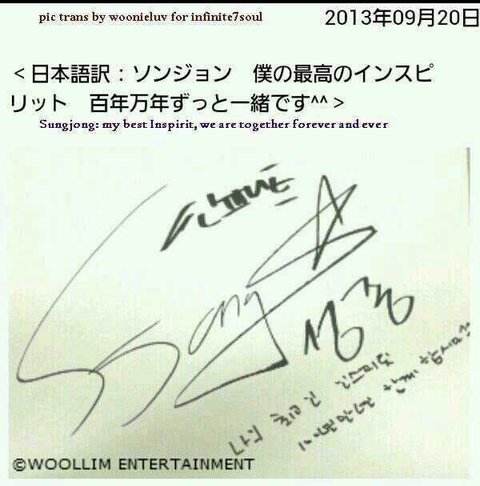 pic trans by woonieluv for infinite7soul
2013年09月20日
＜日本語訳：ソンジョン　僕の最高のインスピ
リット　百年万年ずっと一緒です^^＞
Sungjong: my best Inspirit, we are together forever and ever
인피니트
Sungjong
성종
나의 최고 인스피릿
함께 합시다
©WOOLLIM ENTERTAINMENT